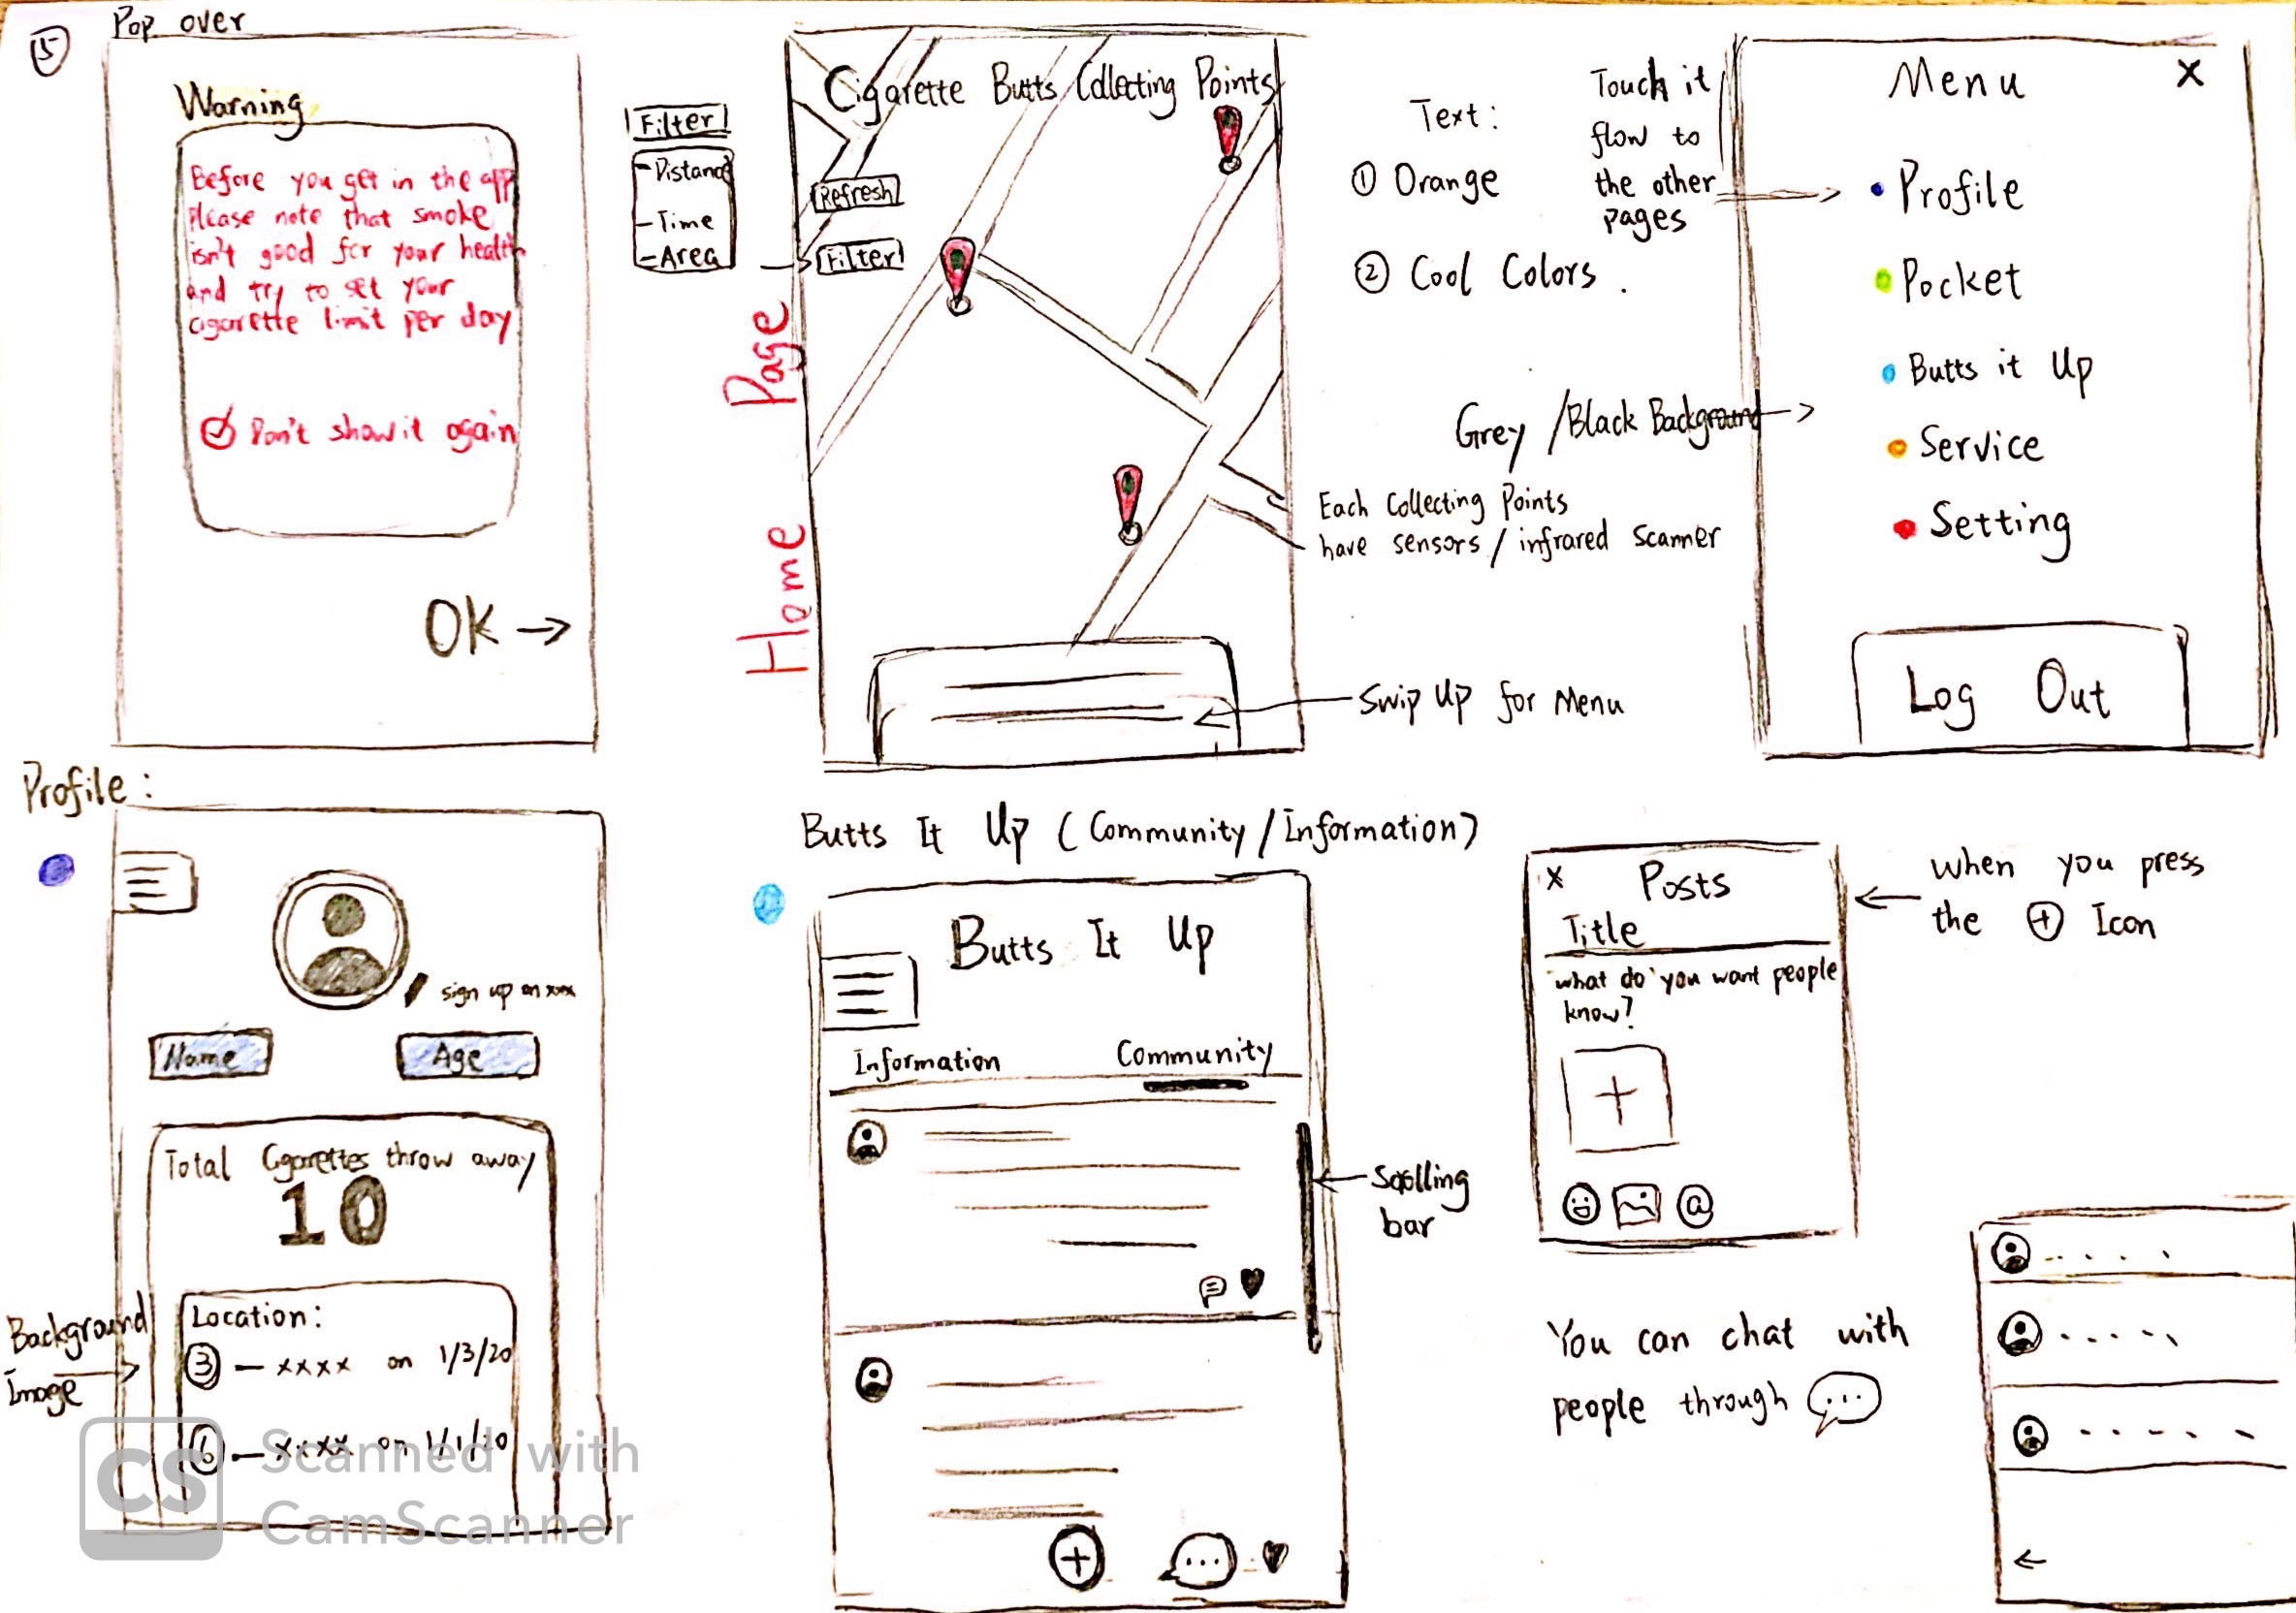 5
Pop over
Warning
Before you get in the app
please note that smoke
isn't good for your health
and try to set your
cigarette limit per day
Don't show it again
OK →
Filter
-Distance
-Time
-Area
Home Page
Cigarette Butts Collecting Points
Refresh
Filter
Text:
① Orange
② Cool Colors.
Touch it
flow to
the other
pages
Grey /Black Background
Each Collecting Points
have sensors / infrared Scanner
Swip Up for Menu
Menu X
Profile
Pocket
Butts it Up
Service
Setting
Log Out
Profile:
sign up on xxx
Name
Age
Total Cigarettes throw away
10
Location:
③ — xxxx on 1/3/20
⑥ — xxxx on 1/1/20
Background
Image
Butts It Up (Community/Information)
Butts It Up
Information Community
Scrolling
bar
X Posts
Title
what do you want people
know?
+
@
when you press
the ⊕ Icon
You can chat with
people through
CS
Scanned with
CamScanner